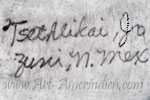 Tsethlikai, Jo
Zuni, N. Mex
www-Art-Amerindien.com